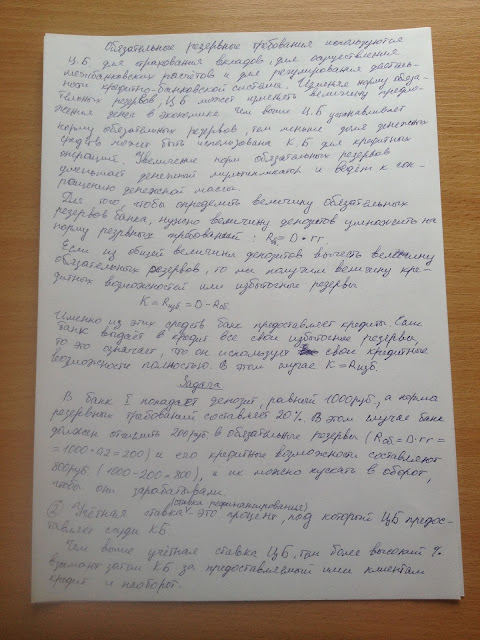 Обязательные резервные требования используются
Ц.Б. для страхования вкладов, для осуществления
межбанковских расчётов и для регулирования деятель-
ности кредитно-банковской системы. Изменяя норму обяза-
тельных резервов, ЦБ может изменять величину предло-
жения денег в экономике. Чем выше ЦБ устанавливает
норму обязательных резервов, тем меньше доля денежных
средств может быть использована К.Б. для кредитных
операций. Увеличение норм обязательных резервов
уменьшает денежный мультипликатор и ведёт к сок-
ращению денежной массы.
Для того, чтобы определить величину обязательных
резервов банка, нужно величину депозитов умножить на
норму резервных требований: Rоб = D • rr
Если из общей величины депозитов вычесть величину
обязательных резервов, то мы получим величину кре-
дитных возможностей или избыточные резервы
K = Rизб = D - Rоб.
Именно из этих средств банк предоставляет кредиты. Если
банк выдаёт в кредит все свои избыточные резервы,
то это означает, что он использует свои кредитные
возможности полностью. В этом случае K = Rизб.
Задача
В банк I попадает депозит, равный 1000 руб., а норма
резервных требований составляет 20%. В этом случае банк
должен отчислить 200 руб в обязательные резервы (Rоб = D • rr =
= 1000 • 0,2 = 200) и его кредитные возможности составляют
800 руб (1000 - 200 = 800), и их можно пускать в оборот,
чтобы они зарабатывали.
(ставка рефинансирования)
② Учётная ставка - это процент, под который ЦБ предос-
тавляет ссуды КБ
Чем выше учётная ставка ЦБ, тем более высокий %
взимают затем КБ за предоставляемый ими клиентам
кредит и наоборот.